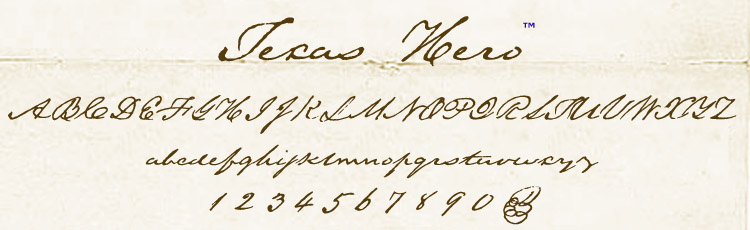 Texas Hero™
ABCDEFGHIJKLMNOPQRSTUVWXYZ
abcdefghijklmnopqrstuvwxyz
1 2 3 4 5 6 7 8 9 0